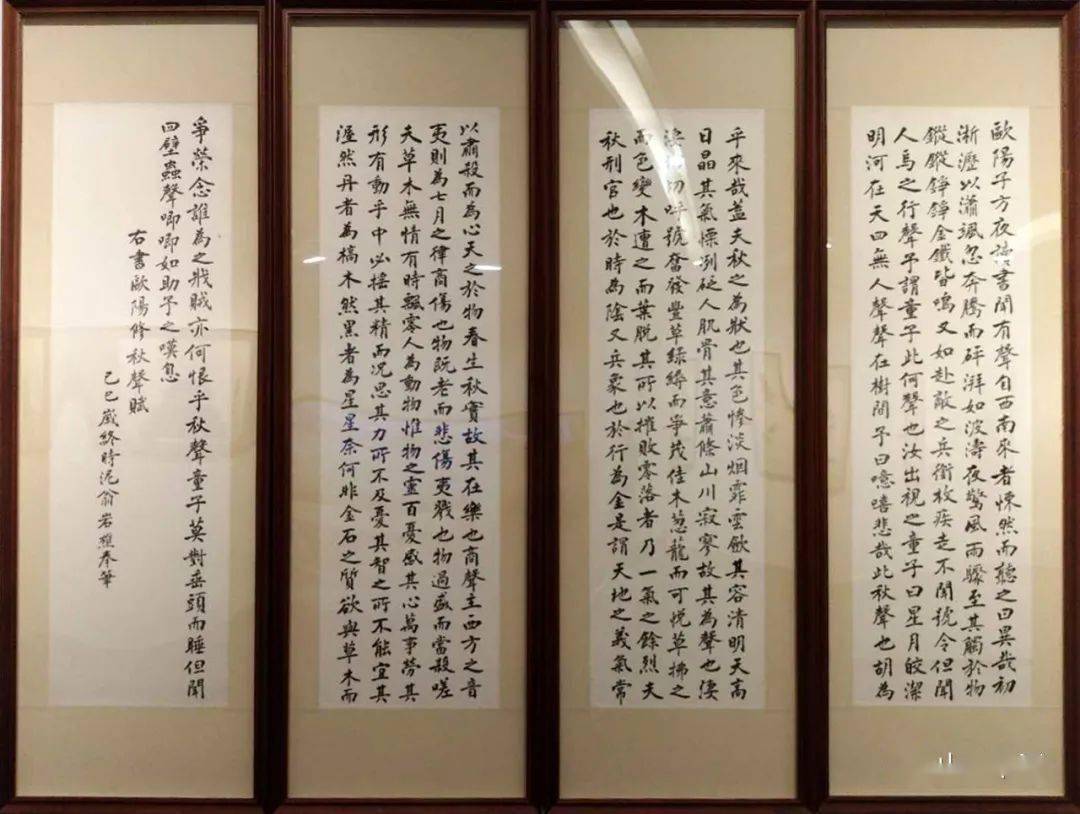 歐陽子方夜讀書聞有聲自西南來者悚然而聽之曰異哉初
淅瀝以瀟颯忽奔騰而砰湃如波濤夜驚風雨驟至其觸於物
鏦鏦錚錚金鐵皆鳴又如赴敵之兵銜枚疾走不聞號令但聞
人馬之行聲予謂童子此何聲也汝出視之童子曰星月皎潔
明河在天四無人聲聲在樹間予曰噫嘻悲哉此秋聲也胡為
乎來哉蓋夫秋之為狀也其色慘淡烟霏雲斂其容清明天高
日晶其氣慄冽砭人肌骨其意蕭條山川寂寥故其為聲也淒
淒切切呼號奮發豐草綠縟而爭茂佳木蔥蘢而可悅草拂之
而色變木遭之而葉脫其所以摧敗零落者乃一氣之餘烈夫
秋刑官也於時為陰又兵象也於行為金是謂天地之義氣常
以肅殺而為心天之於物春生秋實故其在樂也商聲主西方之音
夷則為七月之律商傷也物既老而悲傷夷戮也物過盛而當殺嗟
夫草木無情有時飄零人為動物惟物之靈百憂感其心萬事勞其
形有動乎中必搖其精而況思其力所不及憂其智之所不能宜其
渥然丹者為槁木然黑者為星星奈何非金石之質欲與草木而
爭榮念誰為之戕賊亦何恨乎秋聲童子莫對垂頭而睡但聞
四壁蟲聲唧唧如助予之嘆息
右書歐陽修秋聲賦
己巳歲終時泥翁岩奉筆